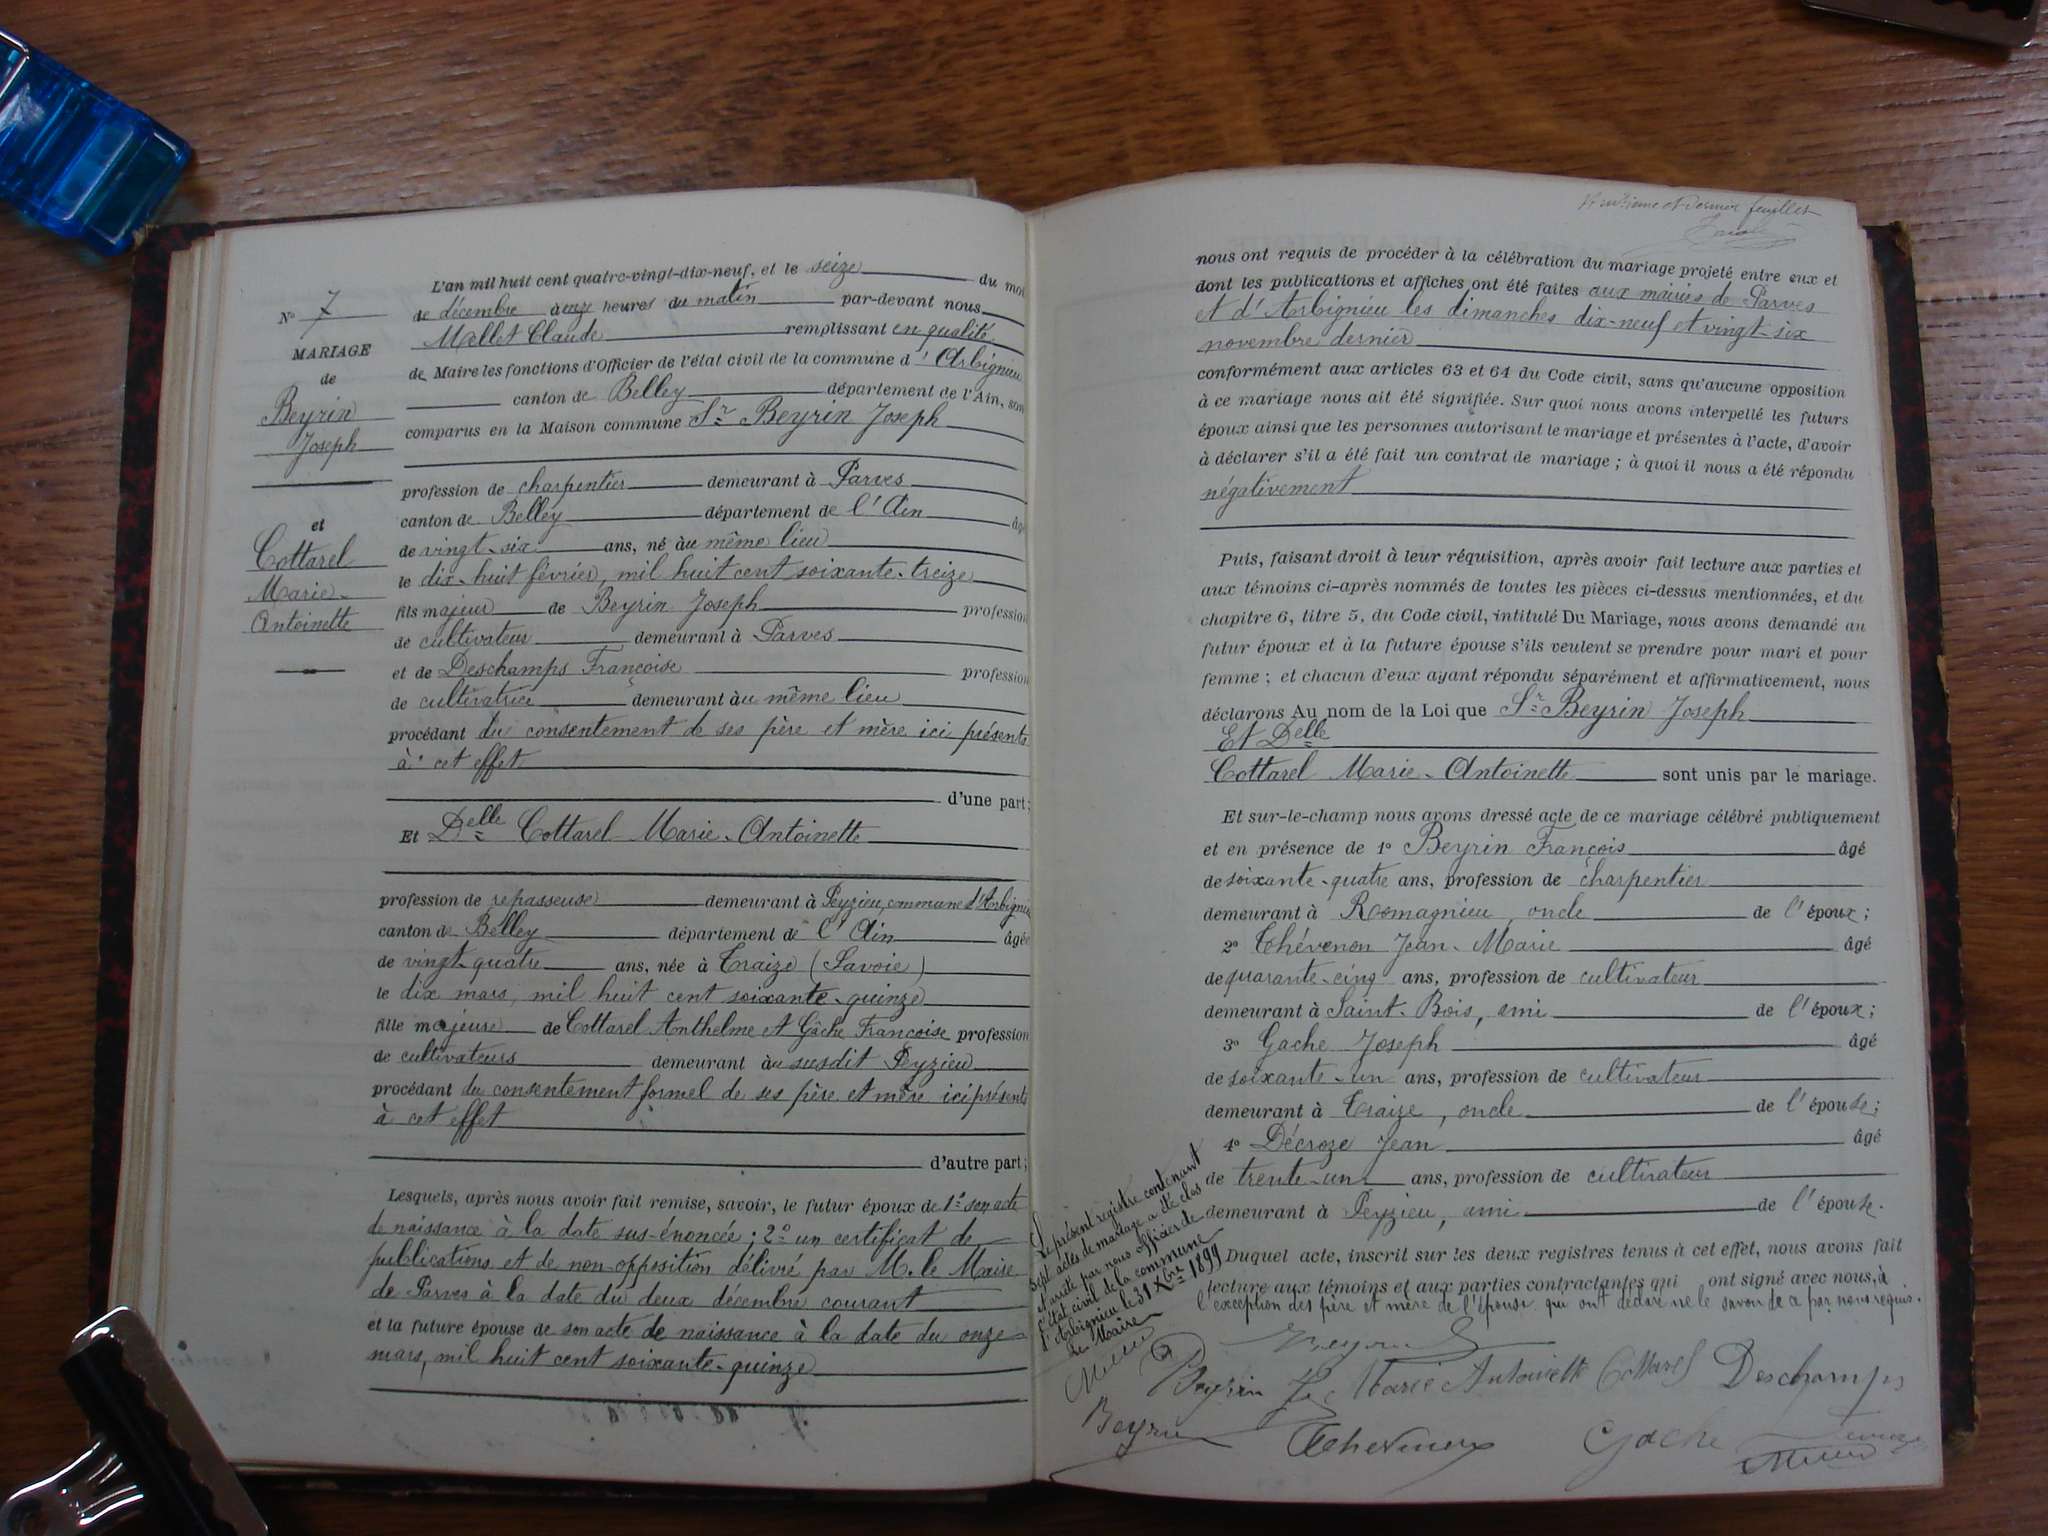 N° 7
MARIAGE
de
Beyrin
Joseph
et
Cottarel
Marie-
Antoinette
L'an mil huit cent quatre-vingt-dix-neuf, et le seize du moi
de décembre à onze heures du matin par-devant nous
Mollet Claude remplissant en qualité
de Maire les fonctions d'Officier de l'état civil de la commune d'Arbignieu
canton de Belley département de l'Ain, son
comparus en la Maison commune Sr Beyrin Joseph
profession de charpentier demeurant à Parves
canton de Belley département de l'Ain âgé
de vingt-six ans, né au même lieu
le dix-huit février, mil huit cent soixante-treize
fils majeur de Beyrin Joseph profession
de cultivateur demeurant à Parves
et de Deschamps Françoise profession
de cultivatrice demeurant au même lieu
procédant du consentement de ses père et mère ici présents
à cet effet
d'une part;
Et Delle Cottarel Marie-Antoinette
profession de repasseuse demeurant à Peyzieu, commune d'Arbignieu
canton de Belley département de l'Ain âgée
de vingt-quatre ans, née à Traize (Savoie)
le dix mars, mil huit cent soixante-quinze
fille majeure de Cottarel Anthelme et Gâche Françoise profession
de cultivateurs demeurant au susdit Peyzieu
procédant du consentement formel de ses père et mère ici présents
à cet effet
d'autre part;
Lesquels, après nous avoir fait remise, savoir, le futur époux de 1° son acte
de naissance à la date sus-énoncée; 2° un certificat de
publications et de non-opposition délivré par M. le Maire
de Parves à la date du deux décembre courant
et la future épouse de son acte de naissance à la date du onze
mars, mil huit cent soixante-quinze
et dernier feuillet
nous ont requis de procéder à la célébration du mariage projeté entre eux et
dont les publications et affiches ont été faites aux mairies de Parves
et d'Arbignieu les dimanches dix-neuf et vingt-six
novembre dernier
conformément aux articles 63 et 64 du Code civil, sans qu'aucune opposition
à ce mariage nous ait été signifiée. Sur quoi nous avons interpellé les futurs
époux ainsi que les personnes autorisant le mariage et présentes à l'acte, d'avoir
à déclarer s'il a été fait un contrat de mariage; à quoi il nous a été répondu
négativement
Puis, faisant droit à leur réquisition, après avoir fait lecture aux parties et
aux témoins ci-après nommés de toutes les pièces ci-dessus mentionnées, et du
chapitre 6, titre 5, du Code civil, intitulé Du Mariage, nous avons demandé au
futur époux et à la future épouse s'ils veulent se prendre pour mari et pour
femme; et chacun d'eux ayant répondu séparément et affirmativement, nous
déclarons Au nom de la Loi que Sr Beyrin Joseph
Et Delle
Cottarel Marie-Antoinette sont unis par le mariage.
Et sur-le-champ nous avons dressé acte de ce mariage célébré publiquement
et en présence de 1° Beyrin François âgé
de soixante-quatre ans, profession de charpentier
demeurant à Romagnieu, oncle de l'époux;
2° Thévenon Jean-Marie âgé
de quarante-cinq ans, profession de cultivateur
demeurant à Saint-Bois, ami de l'époux;
3° Gache Joseph âgé
de soixante-un ans, profession de cultivateur
demeurant à Traize, oncle de l'épouse;
4° Décroze Jean âgé
de trente-un ans, profession de cultivateur
demeurant à Peyzieu, ami de l'épouse.
Duquel acte, inscrit sur les deux registres tenus à cet effet, nous avons fait
lecture aux témoins et aux parties contractantes qui ont signé avec nous, à
l'exception des père et mère de l'épouse qui ont déclaré ne le savoir de ce par nous requis.
Le présent registre contenant
sept actes de mariage a été clos
et arrêté par nous officier de
l'état civil de la commune
d'Arbignieu le 31 Xbre 1899
Le Maire
Beyrin Marie Antoinette Cottarel Deschamps
Beyrin
Gache